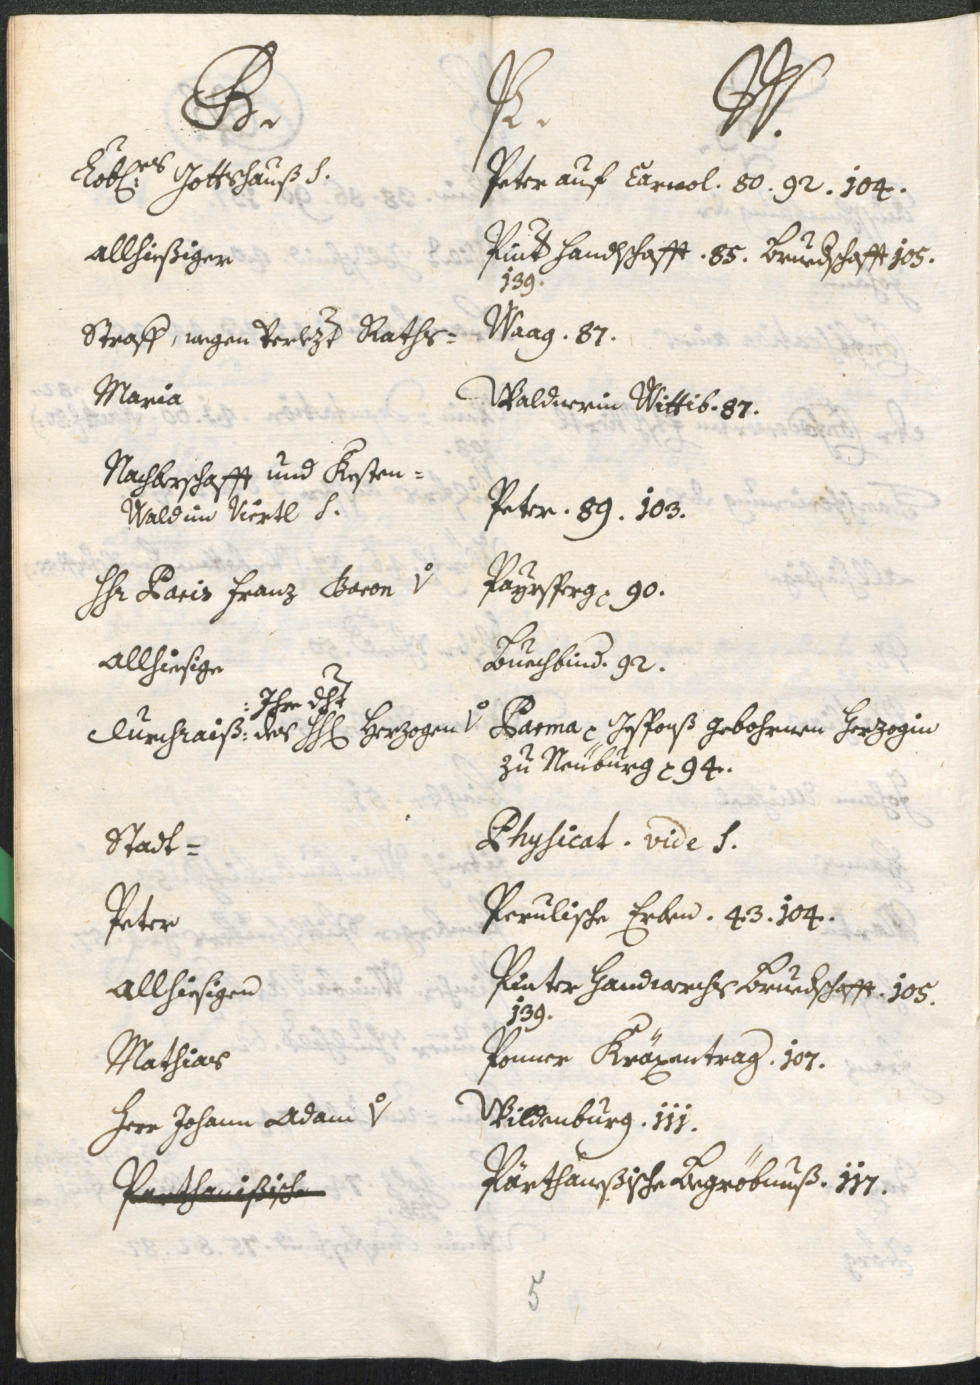 B. P. W.
Lobl:es Gottshauß S. Peter auf Carnol. 80. 92. 104.
Allhießiger Pint Handschafft. 85. Bruedschafft 105.
139.
Straff, wegen Verlezt Raths= Waag. 87.
Maria Waldnerin Wittib. 87.
Nachberschafft und Kesten=
Wald im Viertl S. Peter. 89. 103.
HH Paris Franz Baron v Payrsperg. 90.
Allhiesige Buechbind. 92.
: Ihro dht
Durchraiß: des HH Herzogen v Parma Gesponß gebohrnen Herzogin
zu Neuburg 94.
Stadt= Physicat. vide S.
Peter Perulische Erben. 43. 104.
Allhiesigen Pinter Handwerchs Bruedschafft. 105.
139.
Mathias Ponner Kräxentrag. 107.
Herr Johann Adam v Wildenburg. 111.
Parthanißische Pärthaneßische Begröbnuß. 117.
5